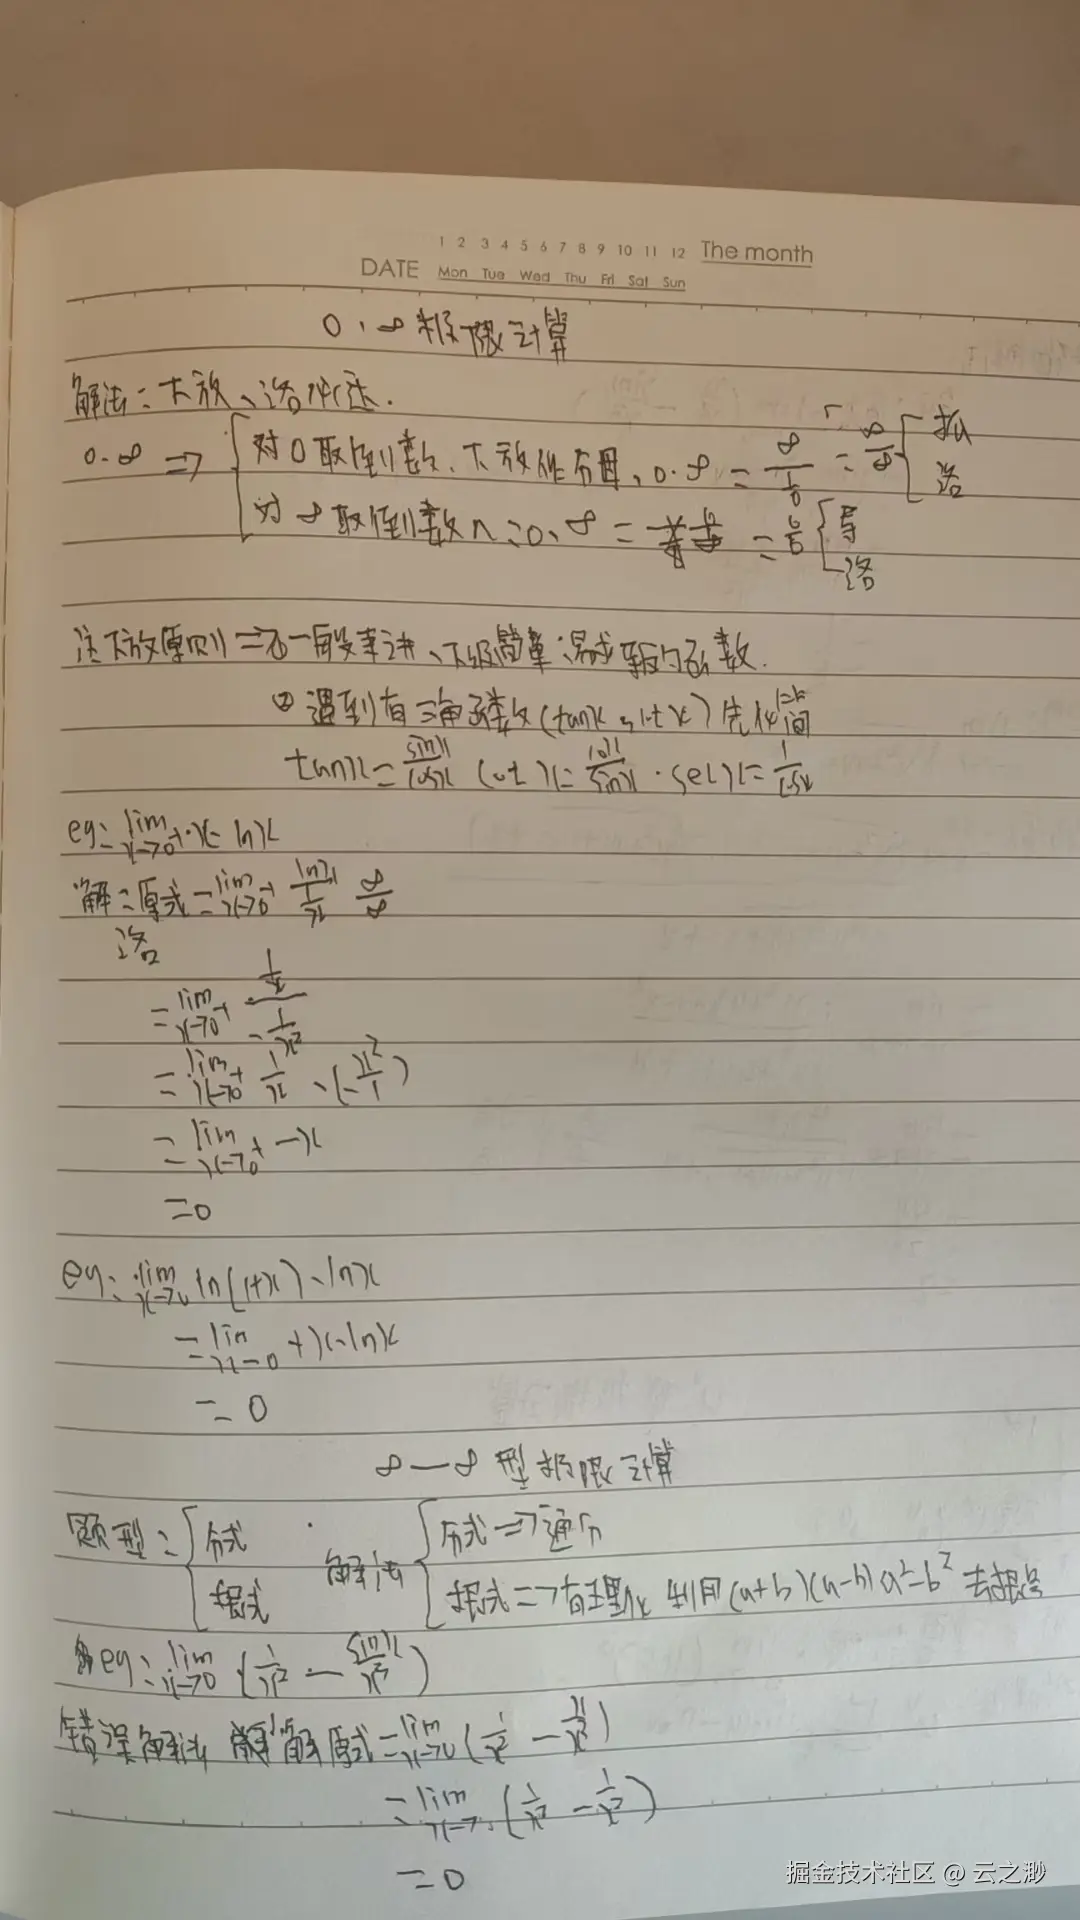 1 2 3 4 5 6 7 8 9 10 11 12 The month
DATE Mon Tue Wed Thu Fri Sat Sun
0·∞极限计算
解法: 下放、洛必达.
0·∞ ⇒ { 对0取倒数、下放作分母, 0·∞ = ∞/(1/0) = ∞/∞ { 抓 洛
对∞取倒数 0·∞ = = 0/0 { 等 洛
注下放原则 ⇒ ①一般来讲、下放简单易求导的函数.
② 遇到有三角函数(tanx, cotx)先化简
tanx = sinx/cosx cotx = cosx/sinx · secx = 1/cosx
eg: lim x→0+ x·lnx
解:原式 = lim x→0+ lnx/(1/x) ∞/∞
洛
= lim x→0+ (1/x)/(-1/x²)
= lim x→0+ 1/x · (-x²/1)
= lim x→0+ -x
= 0
eg: lim x→0 ln(1+x)·lnx
= lim x→0+ x·lnx
= 0
∞—∞型极限计算
题型: { 分式 解法 { 分式 ⇒ 通分
根式 根式 ⇒ 有理化 利用(a+b)(a-b) a²-b² 去根号
eg: lim x→0 (1/x² - sinx/x³)
错误解法 解原式 = lim x→0 (1/x² - x/x³)
= lim x→0 (1/x² - 1/x²)
= 0
掘金技术社区 @ 云之渺